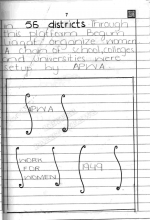 7
in 56 districts Through
this platform Begum
organize women
A chain of school, colleges
and Universities were
setup by APWA.
APWA
WORK
FOR
WOMEN
1949